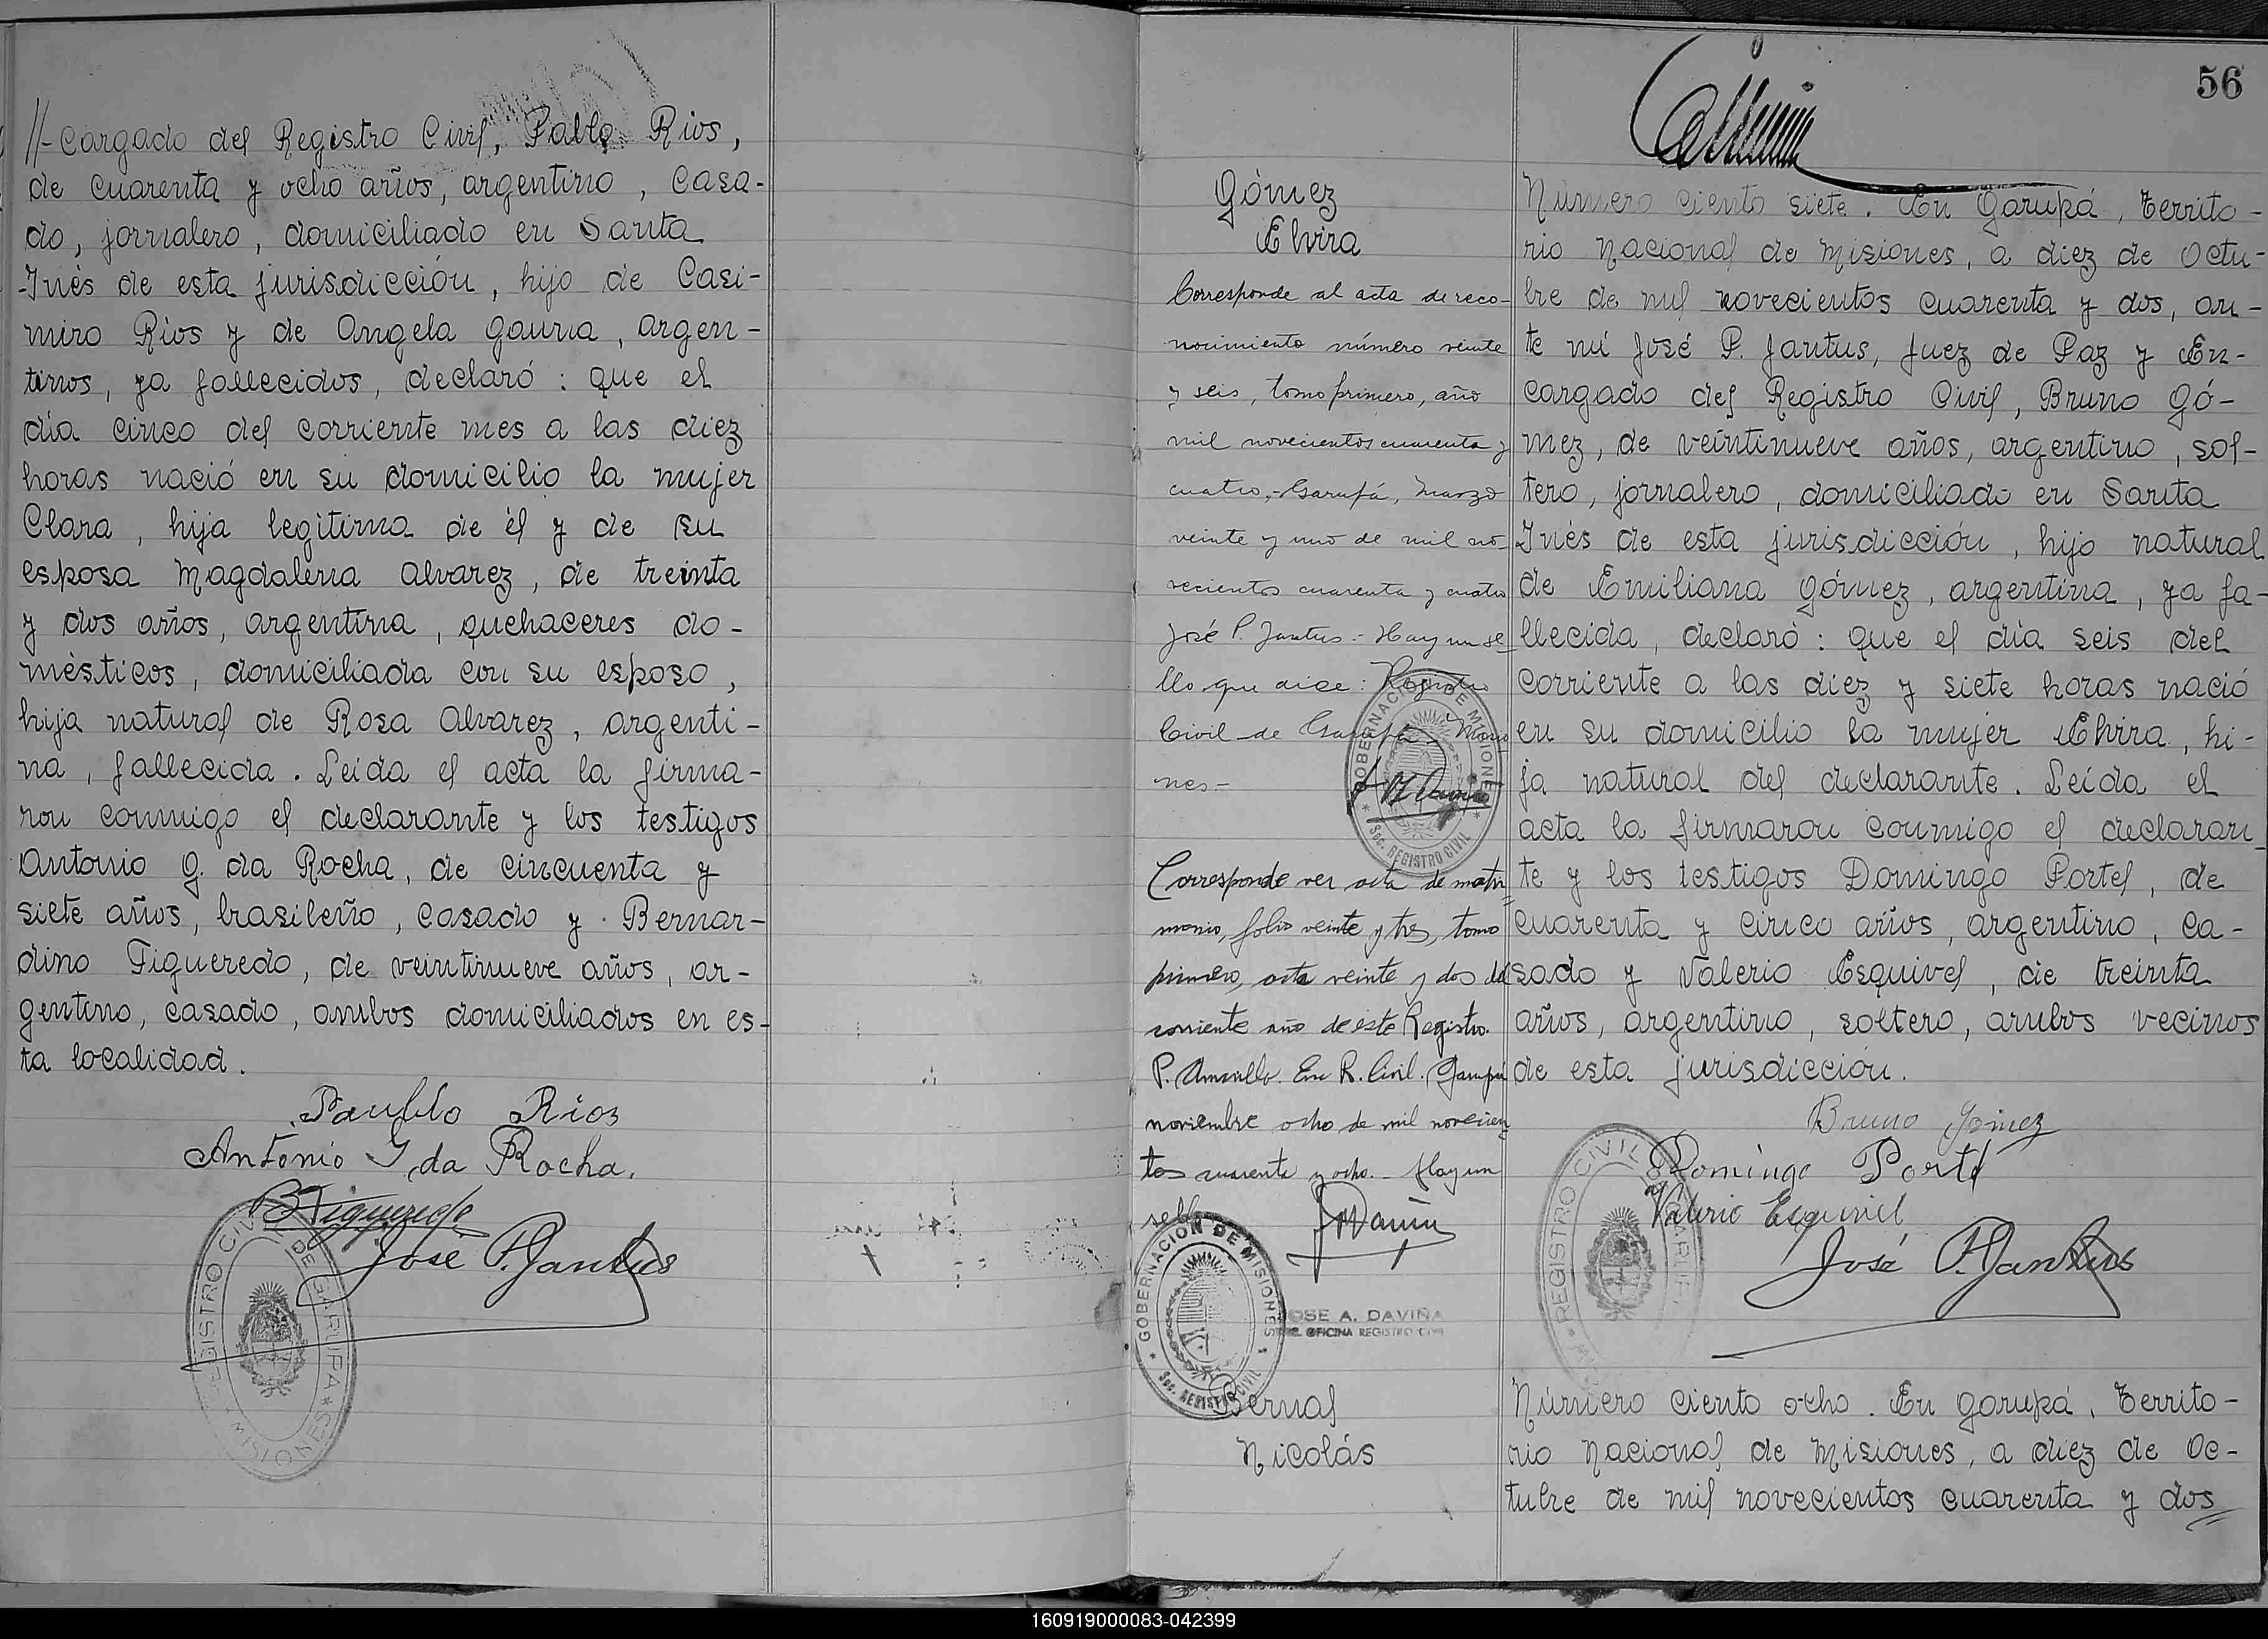 //-cargado del Registro Civil, Pablo Rios,
de cuarenta y ocho años, argentino, casa-
do, jornalero, domiciliado en Santa
Inés de esta jurisdicción, hijo de Casi-
miro Rios y de Angela Gauna, argen-
tinos, ya fallecidos, declaró: que el
día cinco del corriente mes a las diez
horas nació en su domicilio la mujer
Clara, hija legítima de él y de su
esposa Magdalena Alvarez, de treinta
y dos años, argentina, quehaceres do-
mésticos, domiciliada con su esposo,
hija natural de Rosa Alvarez, argenti-
na, fallecida. Leída el acta la firma-
ron conmigo el declarante y los testigos
Antonio G. da Rocha, de cincuenta y
siete años, brasileño, casado y Bernar-
dino Figueredo, de veintinueve años, ar-
gentino, casado, ambos domiciliados en es-
ta localidad.
Paublo Rios
Antonio G da Rocha.
BFigueredo
José P. Jantus
REGISTRO CIVIL DE GARUPA
MISIONES
56
Gómez
Elvira
Corresponde al acta de reco-
nocimiento número veinte
y seis, tomo primero, año
mil novecientos cuarenta y
cuatro,- Garupá, Marzo
veinte y uno de mil no-
vecientos cuarenta y cuatro
José P. Jantus.- Hay un se-
llo que dice: Registro
Civil de Garupá - Misio
nes-
GOBERNACION DE MISIONES
Sec. REGISTRO CIVIL
Corresponde ver acta de matri
monio, folio veinte y tres, tomo
primero, acta veinte y dos del
corriente año de este Registro.
P. Amarillo. Enc R. Civil. Garupá
noviembre ocho de mil novecien
tos cuarenta y ocho.- Hay un
sello
GOBERNACION DE MISIONES
Sec. REGISTRO CIVIL
JOSE A. DAVIÑA
OFICINA REGISTRO CIVIL
Número ciento siete. En Garupá, Territo-
rio Nacional de Misiones, a diez de Octu-
bre de mil novecientos cuarenta y dos, an-
te mí José P. Jantus, Juez de Paz y En-
cargado del Registro Civil, Bruno Gó-
mez, de veintinueve años, argentino, sol-
tero, jornalero, domiciliado en Santa
Inés de esta jurisdicción, hijo natural
de Emiliana Gómez, argentina, ya fa-
llecida, declaró: que el día seis del
corriente a las diez y siete horas nació
en su domicilio la mujer Elvira, hi-
ja natural del declarante. Leída el
acta la firmaron conmigo el declaran-
te y los testigos Domingo Portel, de
cuarenta y cinco años, argentino, ca-
sado y Valerio Esquivel, de treinta
años, argentino, soltero, ambos vecinos
de esta jurisdicción.
Bruno Gomez
Domingo Portel
Valerio Esquivel
José P. Jantus
REGISTRO CIVIL
Bernal
Nicolás
Número ciento ocho. En Garupá, Territo-
rio Nacional de Misiones, a diez de Oc-
tubre de mil novecientos cuarenta y dos
160919000083-042399